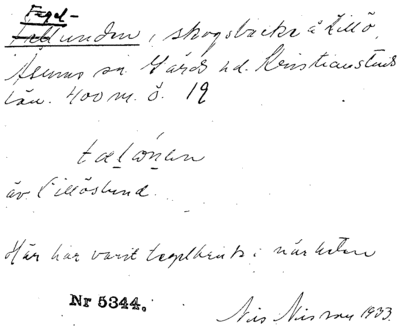 Tegel-
lunden, skogsbacke å Lillö,
Åsums sn Gärds hd. Kristianstads
län. 400 m. ö. 19
äv. Lillöslund.
Här har varit tegelbruk i närheten
Nr 5344.
Nils Nilsson 1933.